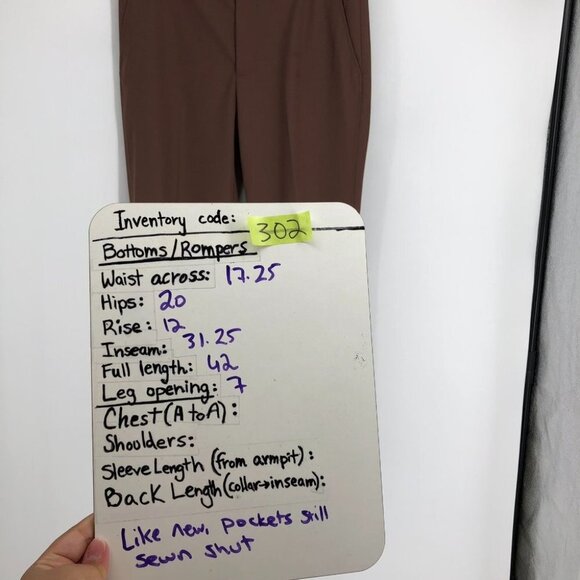 Inventory code: 302
Bottoms/Rompers
Waist across: 17.25
Hips: 20
Rise: 12
Inseam: 31.25
Full length: 42
Leg opening: 7
Chest (A to A):
Shoulders:
Sleeve Length (from armpit):
Back Length (collar→inseam):
Like new, pockets still
sewn shut